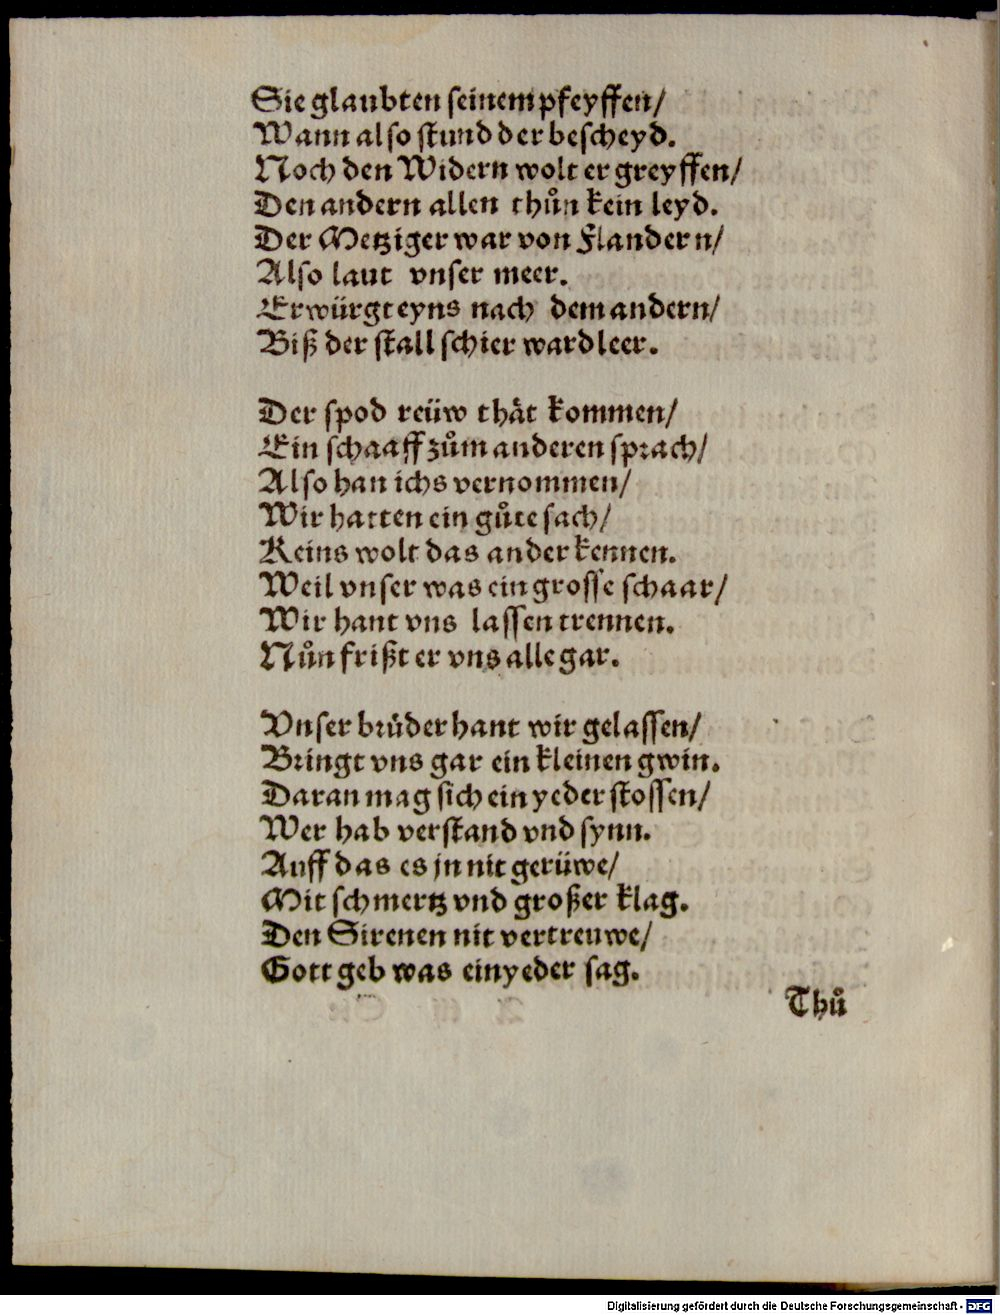 Sie glaubten ſeinem pfeyffen/
Wann alſo ſtund der beſcheyd.
Noch den Widern wolt er greyffen/
Den andern allen thuͦn kein leyd.
Der Metziger war von Flandern/
Alſo laut vnſer meer.
Erwürgt eyns nach dem andern/
Biß der ſtall ſchier ward leer.

Der ſpod reüw thaͤt kommen/
Ein ſchaaff zuͦm anderen ſprach/
Alſo han ichs vernommen/
Wir hatten ein guͦte ſach/
Keins wolt das ander kennen.
Weil vnſer was ein groſſe ſchaar/
Wir hant vns laſſen trennen.
Nuͦn frißt er vns alle gar.

Vnſer bruͤder hant wir gelaſſen/
Bringt vns gar ein kleinen gwin.
Daran mag ſich ein yeder ſtoſſen/
Wer hab verſtand vnd ſynn.
Auff das es jn nit gerüwe/
Mit ſchmertz vnd großer klag.
Den Sirenen nit vertreuwe/
Gott geb was ein yeder ſag.
Thuͦ
Digitalisierung gefördert durch die Deutsche Forschungsgemeinschaft - DFG